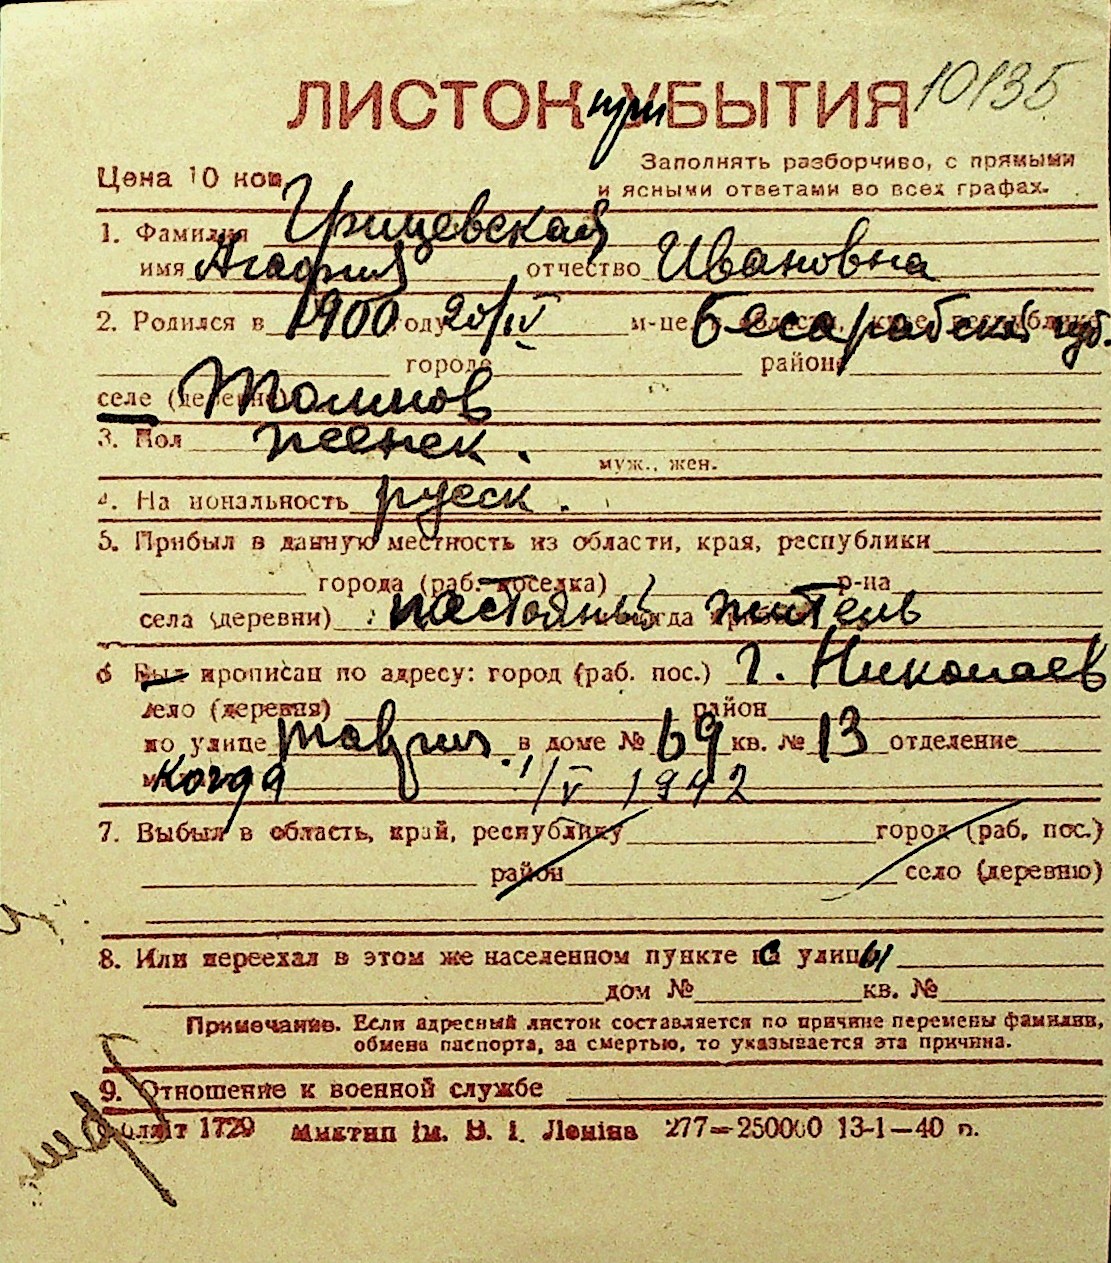 ЛИСТОК при УБЫТИЯ 10135
Цена 10 коп.
Заполнять разборчиво, с прямыми
и ясными ответами во всех графах.
1. Фамилия Грищевская
имя Агафия отчество Ивановна
2. Родился в 1900 году 20/IV м-це Бесарабской губ.
городе районе
селе (деревне)
3. Пол женск.
муж., жен.
4. Национальность русск.
5. Прибыл в данную местность из области, края, республики
города (раб. поселка) р-на
села (деревни) постояный житель
6 Был прописан по адресу: город (раб. пос.) г. Николаев
село (деревня) район
по улице в доме № 69 кв. № 13 отделение
когда 1/V 1942
7. Выбыл в область, край, республику город (раб. пос.)
район село (деревню)
8. Или переехал в этом же населенном пункте с улицы
дом № кв. №
Примечание. Если адресный листок составляется по причине перемены фамилии,
обмена паспорта, за смертью, то указывается эта причина.
9. Отношение к военной службе
1729 Миктип ім. В. І. Леніна 277—250000 13-1—40 п.